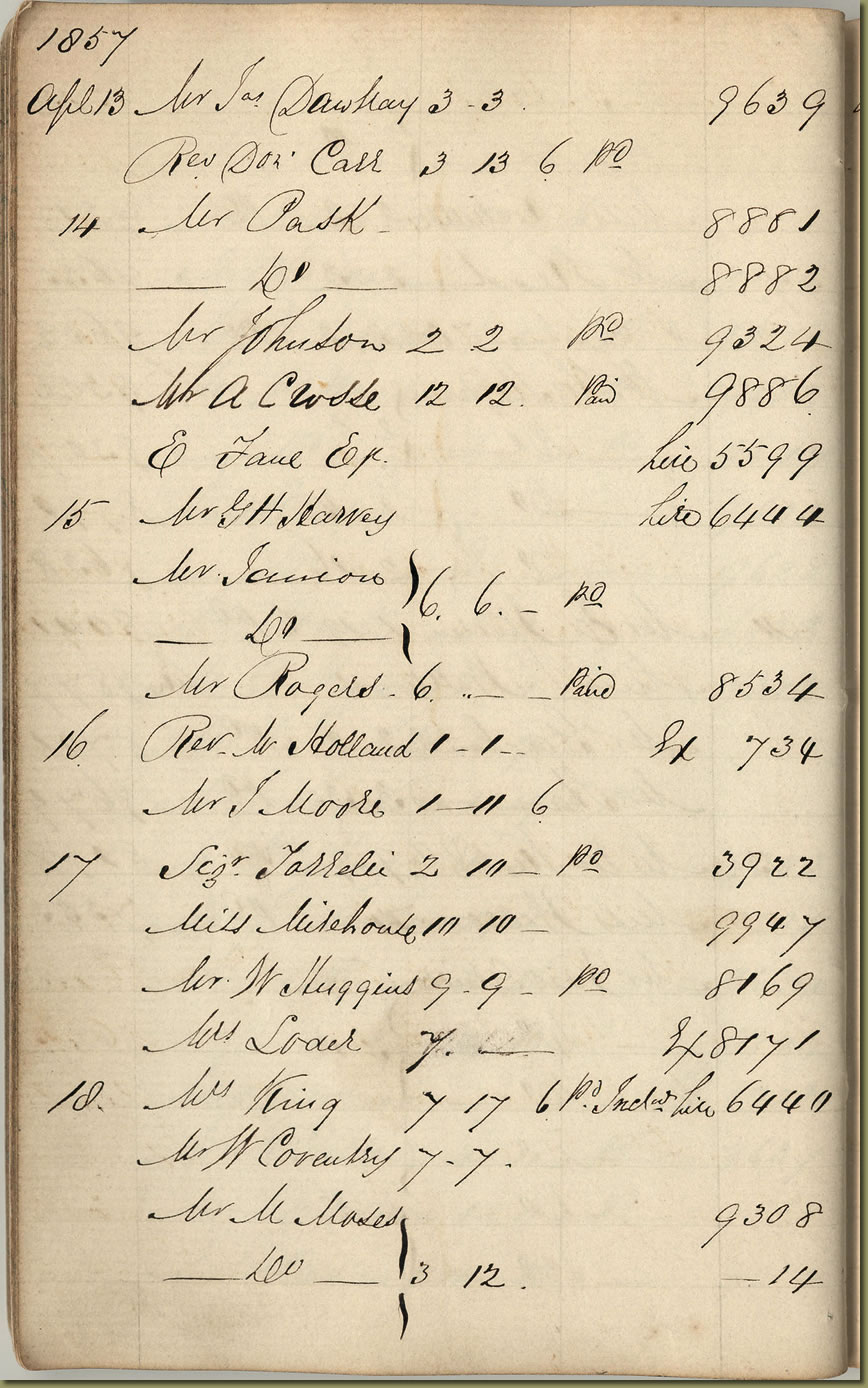 1857
Apl 13 Mr Jas Dawkay 3 - 3 . 9639
Rev Don Carr 3 13 6 pd
14 Mr Pask 8881
— Do — 8882
Mr Johnson 2 2 pd 9324
Mr A Crosse 12 12. Paid 9886
E Fane Ex. hire 5599
15 Mr G H Harvey hire 6444
Mr. Jamion
— Do — } 6. 6. – pd
Mr Rogers - 6. ..— – Paid 8534
16 Rev. W Holland 1 - 1 -- Ex 734
Mr J Moore 1 — 11 6
17 Sigr. Torrelii 2 10 — pd 3922
Miss Mirehouse 10 10 — 9947
Mr. W Huggins 9 - 9 - pd 8169
Mrs Loder 7. — Ex 8171
18. Mrs King 7 17 6 pd. hire 6440
Mr W Coventry 7 - 7 .
Mr M Moses 9308
— Do — } 3 12 . — 14